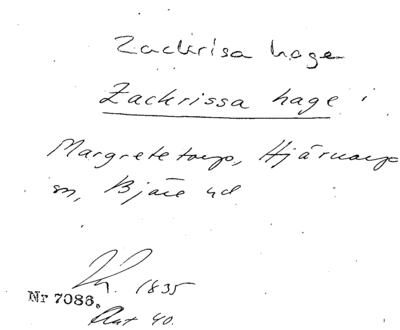 Zackrisa hage
Zackrissa hage
Margretetorp, Hjärnarp
sn, Bjäre hd
1835
Nr 7086.
Ant 40.